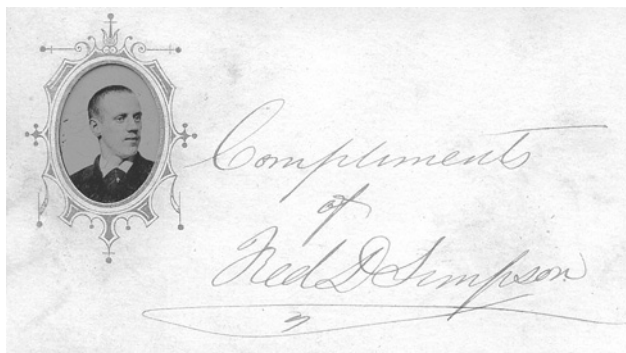 Compliments
of
Fred D Simpson